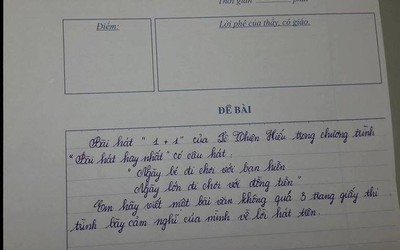 Thời gian ............ phút
Điểm:
Lời phê của thầy, cô giáo.
ĐỀ BÀI
Bài hát " 1 + 1 " của Lê Thiện Hiếu trong chương trình
"Bài hát hay nhất" có câu hát:
" Ngày bé đi chơi với bạn hiền
Ngày lớn đi chơi với đồng tiền "
Em hãy viết một bài văn không quá 3 trang giấy thi
trình bày cảm nghĩ của mình về lời hát trên.